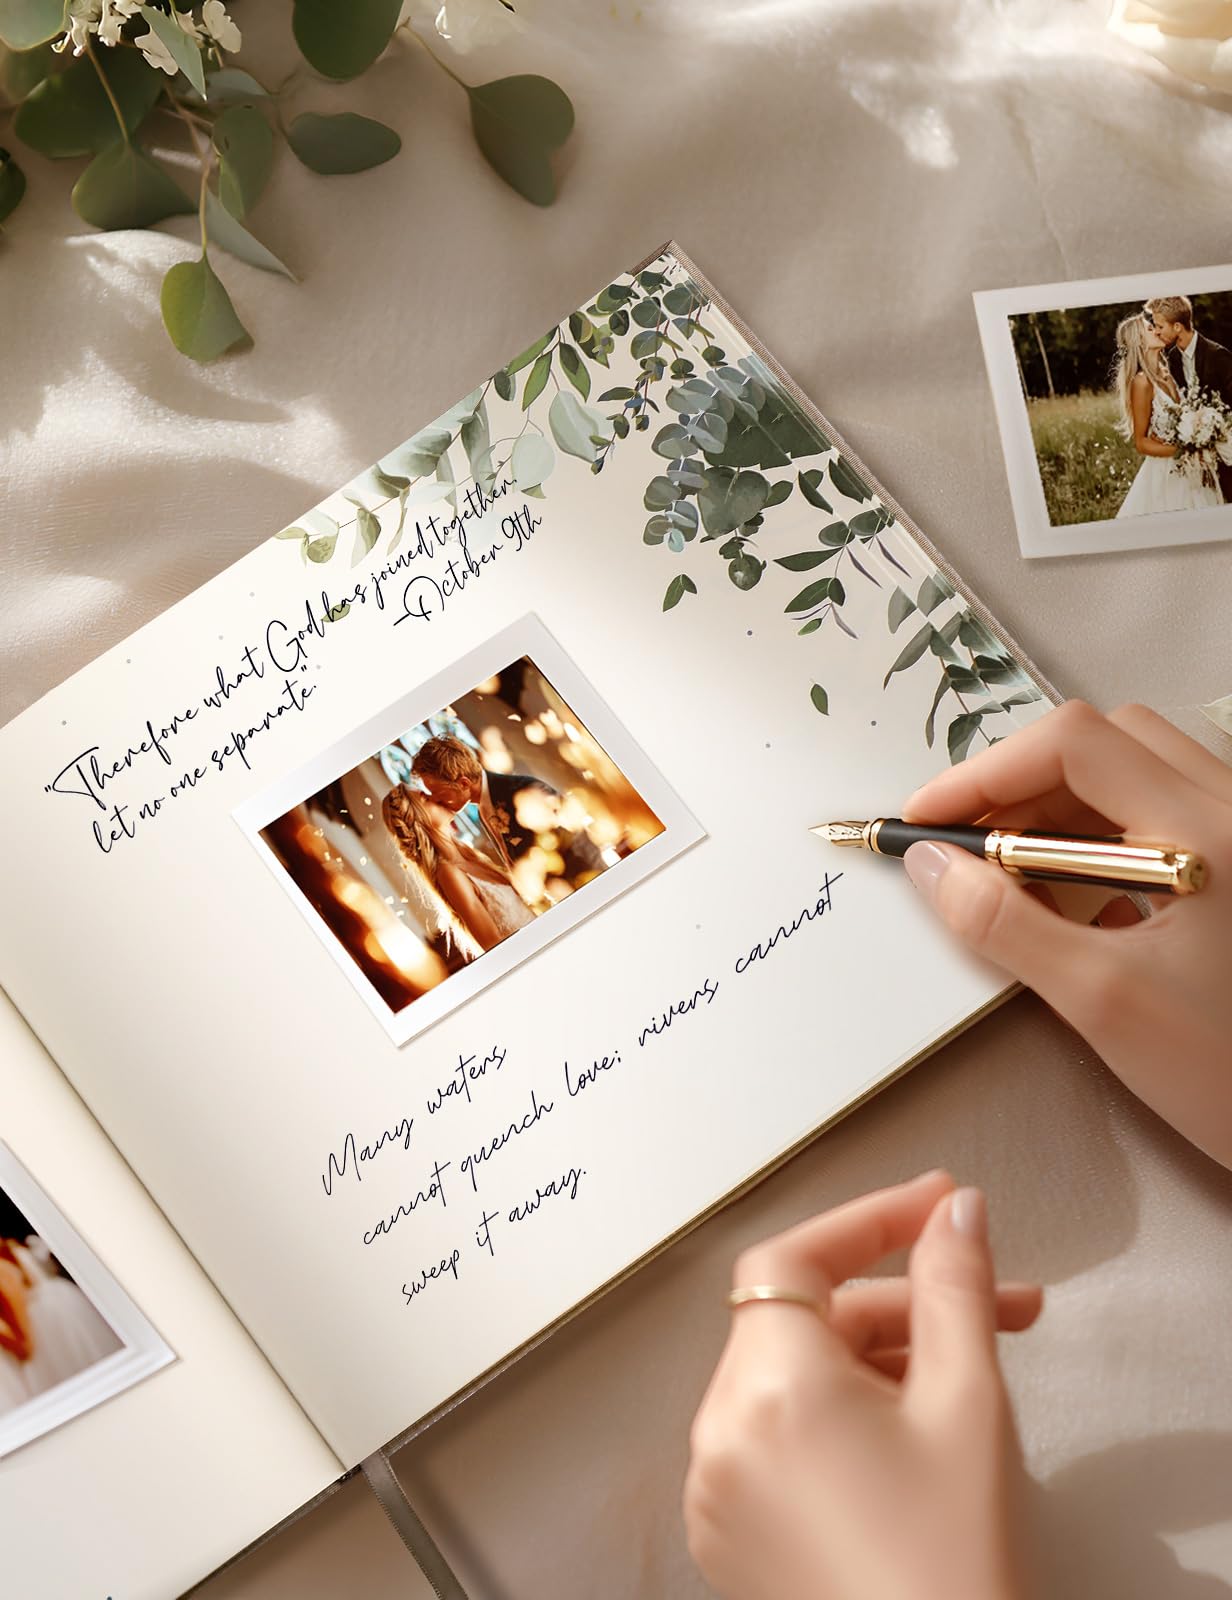 "Therefore what God has joined together.
let no one separate."
-October 9th
Many waters
cannot quench love; rivers cannot
sweep it away.